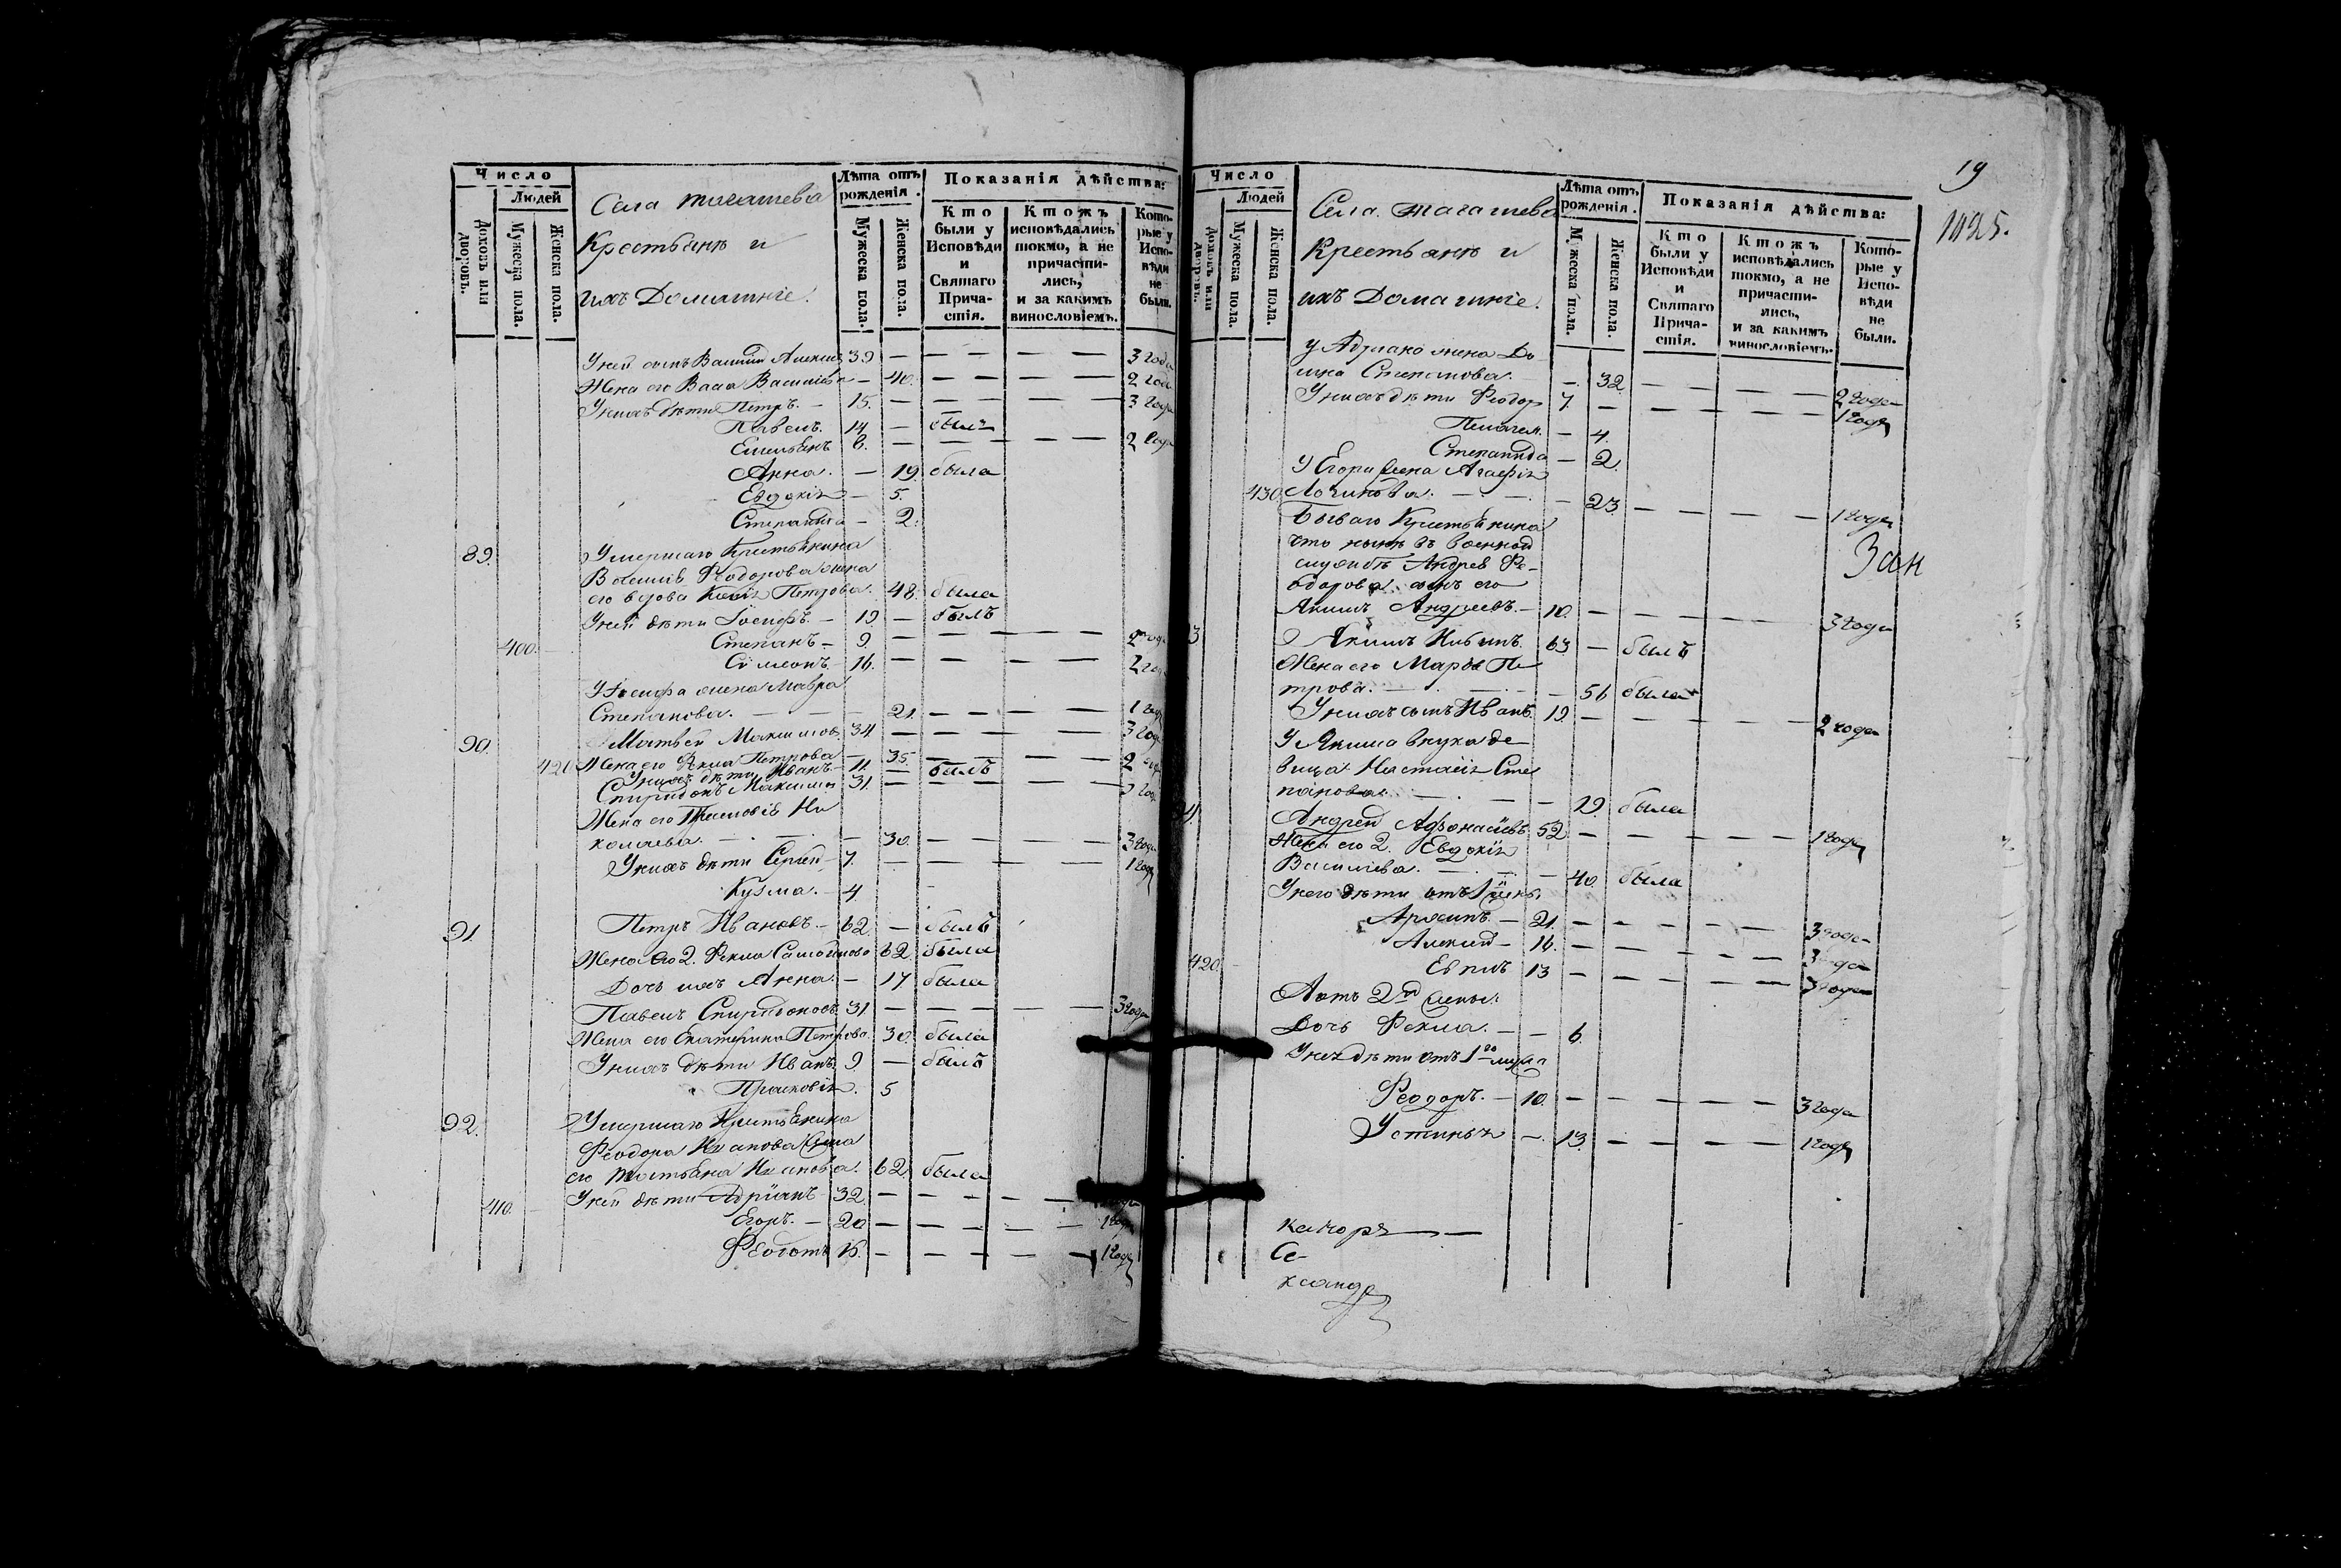 Число
Людей
Домовъ или дворовъ.
Мужеска пола.
Женска пола.
Села
Крестьянѣ и
ихъ Домашніе.
Лѣта отъ рожденія.
Мужеска пола.
Женска пола.
Показанія дѣйства:
Кто были у Исповѣди и Святаго Причастія.
Ктожъ исповѣдались токмо, а не причастились, и за какимъ винословіемъ.
Которые у Исповѣди не были.
У ней сынъ 39 — — — — — 3 года
Жена его Васса — 40. — — — — 2 года
У нихъ дѣти Петръ. — 15. — — — — — 3 года
Павелъ. 14 — былъ
Емельянъ 8. — — — — — 2 года
Анна. — 19 была
Евдокія — 5.
Степанида — 2.
89. Умершаго Крестьянина
Василія Феодорова жена
его вдова Петрова. 48. была
У ней дѣти Іосифъ. — 19 — былъ
400. Степанъ — 9. — — — — — 2 года
Симеонъ. — 16. — — — — — 2 года
У Іосифа жена Мавра
Степанова. — — — 21. — — — — 1 годъ
90. Матвей Максимовъ. 34. — — — — — 3 года
420 Жена его Фекла Петрова — 35. — — — — 2
У нихъ дѣти Иванъ — 11. — былъ
Спиридонъ Максимовъ 31. — — — — — 3 года
Жена его Ни
колаева. — — — 30. — — — — 3 года
У нихъ дѣти Сергей — 7. — — — — — 1 годъ
Кузма. — 4.
91. Петръ Ивановъ. — 62. — былъ
Жена его 2. Фекла 62. была
Дочь ихъ Анна. — 17 была
Павелъ Спиридоновъ. 31. — — — — — 3 года
Жена его Екатерина Петрова. 30. была
У нихъ дѣти Иванъ. 9. — былъ
Прасковія. 5
92. Умершаго Крестьянина
Феодора Иванова жена
его Татьяна Иванова. 62. была
410. У ней дѣти Адріанъ — 32. — — — — —
Егоръ. — 20. — — — — — 1 годъ
Федотъ 16. — — — — — 1 годъ
19
1025.
Число
Людей
Домовъ или дворовъ.
Мужеска пола.
Женска пола.
Села
Крестьянѣ и
ихъ Домашніе.
Лѣта отъ рожденія.
Мужеска пола.
Женска пола.
Показанія дѣйства:
Кто были у Исповѣди и Святаго Причастія.
Ктожъ исповѣдались токмо, а не причастились, и за какимъ винословіемъ.
Которые у Исповѣди не были.
У Адріана жена До
мна Степанова. — 32. — — — — 2 года
У нихъ дѣти Феодоръ 7. — — — — — 1 годъ
Пелагея. — 4.
Степанида — 2.
У Егора жена Агафія
430. Логинова. — — — 23. — — — — 1 годъ
Бываго Крестьянина
что нынѣ въ военной
службѣ Андрея Фе-
одорова сынъ его
Зан
Якимъ Андреевъ. — 10. — — — — — 3 года
3 Якимъ 63 — былъ
Жена его Марѳа Пе
трова. — — — 56 была
У нихъ сынъ Иванъ. 19. — — — — — 2 года
У Якима внука де
вица Настасія Сте
панова. — — — 19. была
4. Андрей Афонасіевъ. 52. — — — — — 1 годъ
Жена его 2. Евдокія
Василіева. — — — 40. была
У него дѣти отъ 1й жены
Архипъ. — 21. — — — — — 3 года
Алексей — 16. — — — — — 3 года
420. 13 — — — — — 3 года
А отъ 2й жены.
Дочь Фекла. — — 6.
У нея дѣти отъ 1го мужа
Феодоръ. — 10. — — — — — 3 года
Устинья — 13. — — — — 1 годъ
ксандр